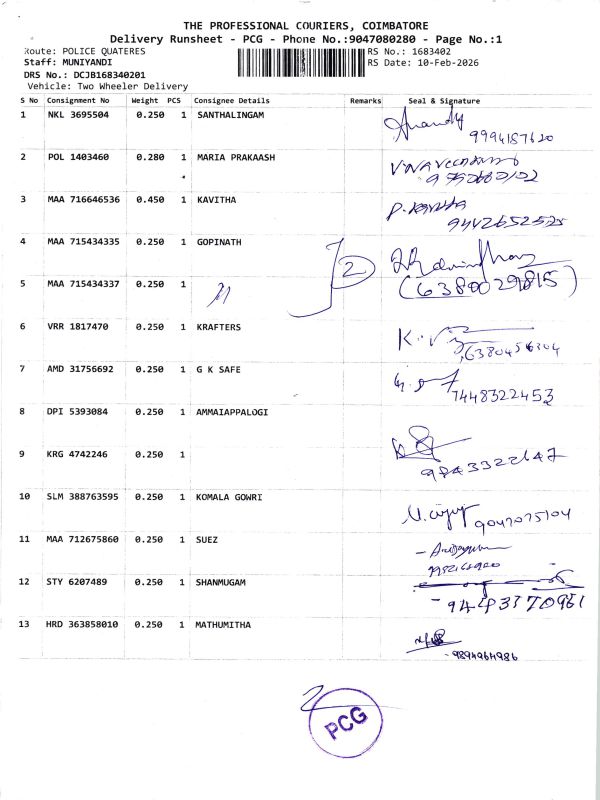 THE PROFESSIONAL COURIERS, COIMBATORE
Delivery Runsheet - PCG - Phone No.:9047080280 - Page No.:1
Route: POLICE QUATERES RS No.: 1683402
Staff: MUNIYANDI RS Date: 10-Feb-2026
DRS No.: DCJB168340201
Vehicle: Two Wheeler Delivery
S No Consignment No Weight PCS Consignee Details Remarks Seal & Signature
1 NKL 3695504 0.250 1 SANTHALINGAM
9994187620
2 POL 1403460 0.280 1 MARIA PRAKAASH
3 MAA 716646536 0.450 1 KAVITHA
P. Kavitha
9442652525
4 MAA 715434335 0.250 1 GOPINATH
2
5 MAA 715434337 0.250 1
(6380029815)
6 VRR 1817470 0.250 1 KRAFTERS
7 AMD 31756692 0.250 1 G K SAFE
7448322453
8 DPI 5393084 0.250 1 AMMAIAPPALOGI
9 KRG 4742246 0.250 1
9843322647
10 SLM 388763595 0.250 1 KOMALA GOWRI
9047075104
11 MAA 712675860 0.250 1 SUEZ
12 STY 6207489 0.250 1 SHANMUGAM
- 9443370961
13 HRD 363858010 0.250 1 MATHUMITHA
- 9894964986
PCG